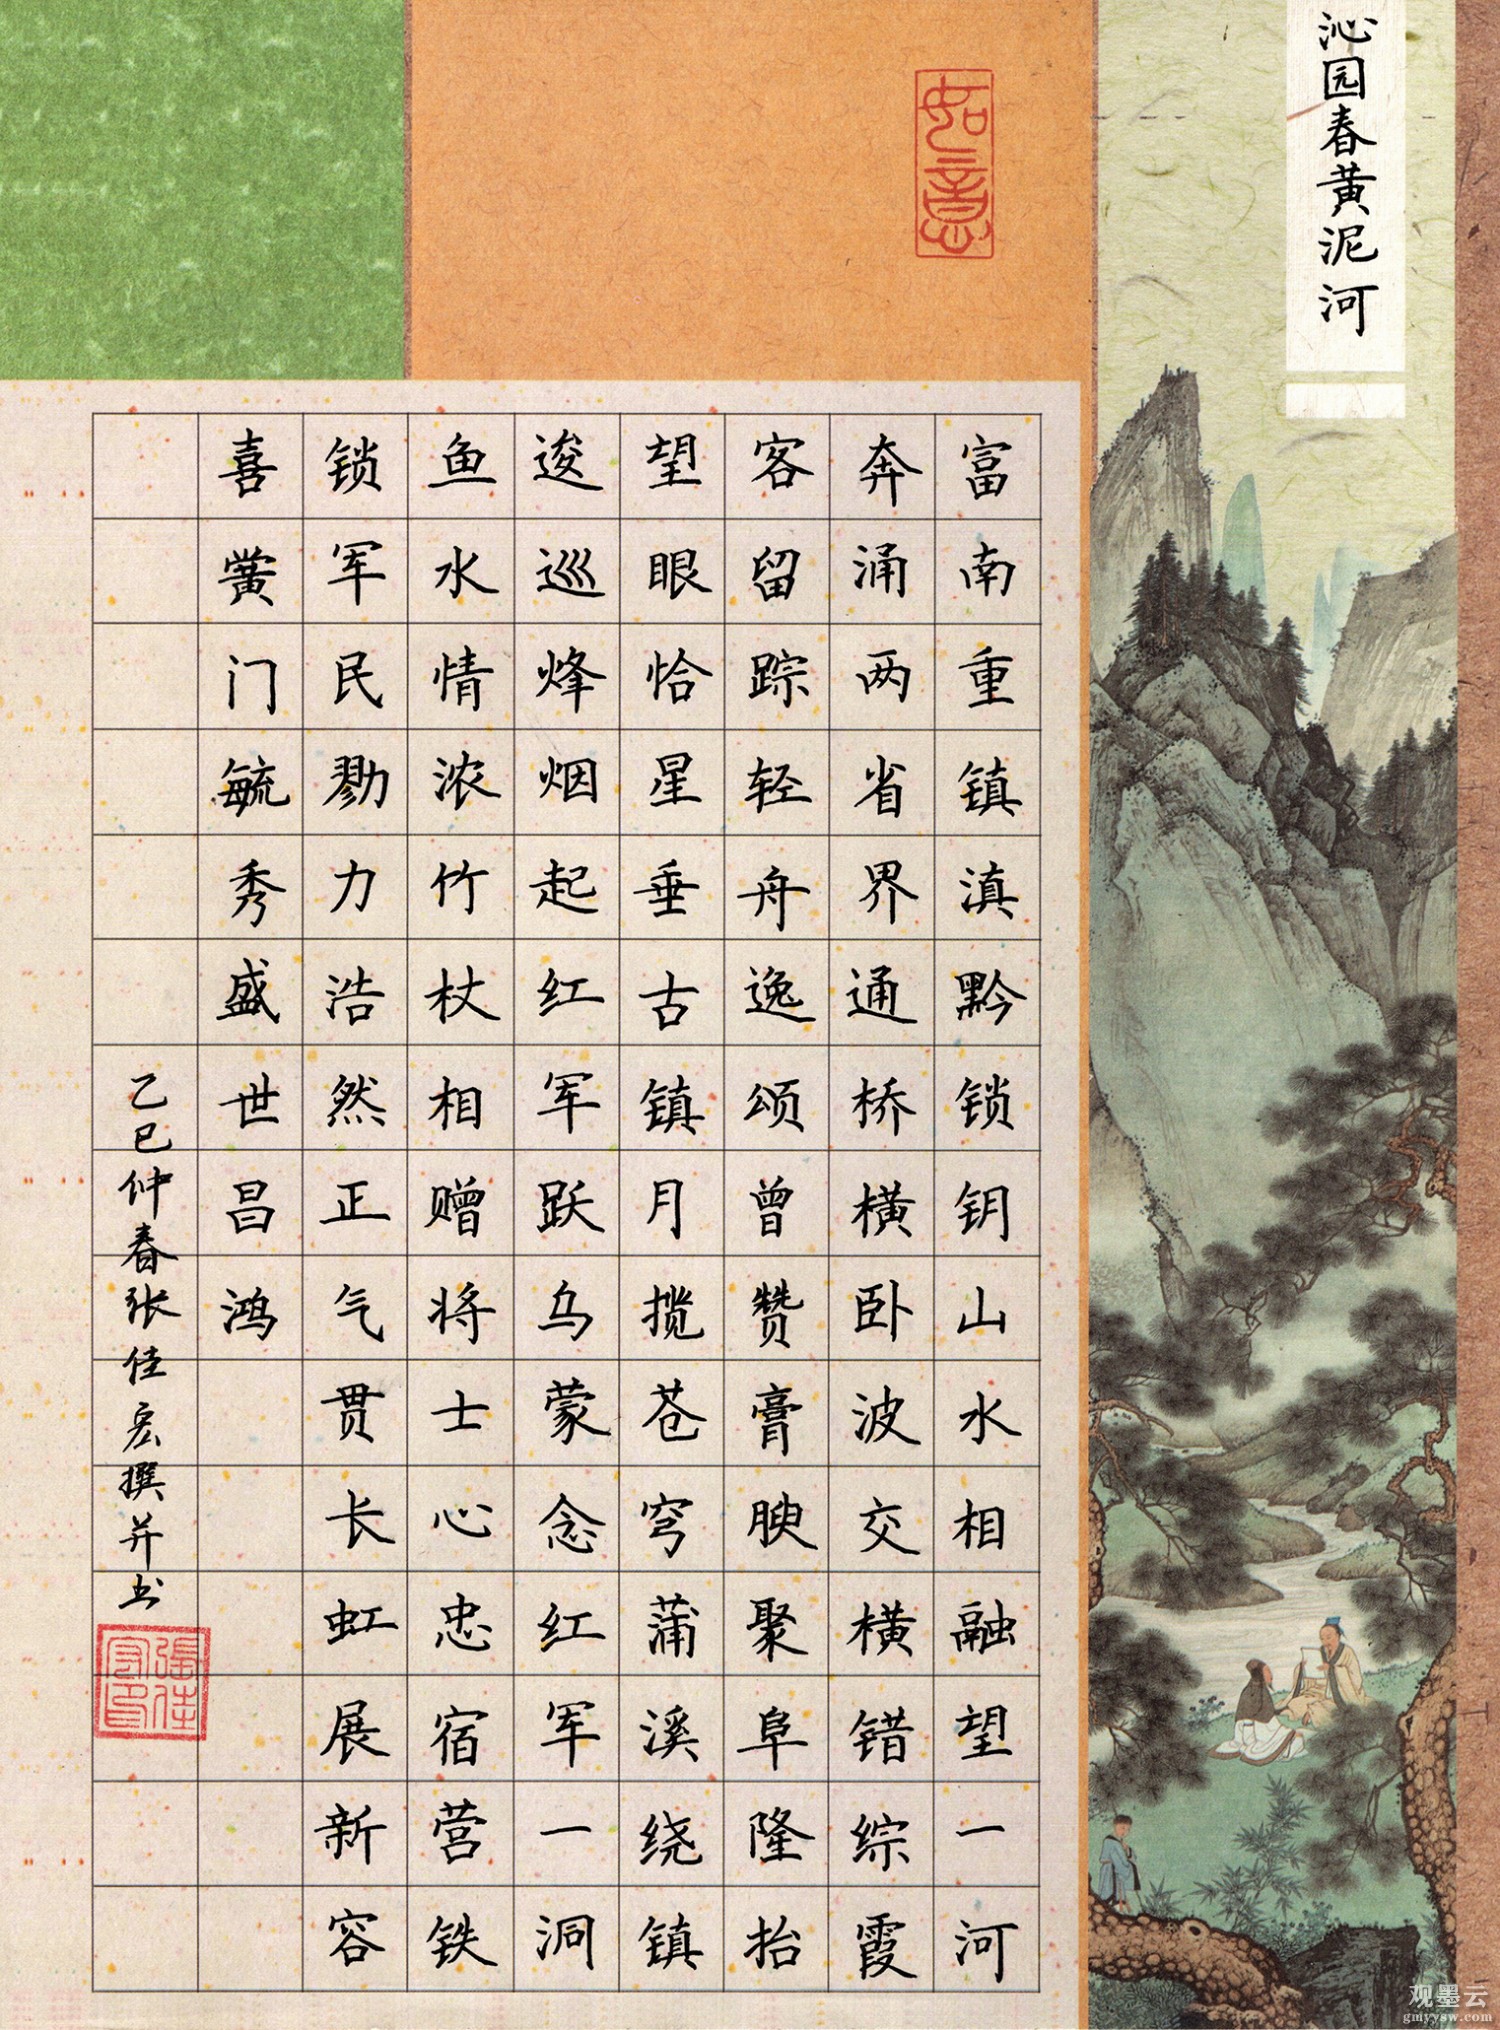 沁园春黄泥河
如意
富南重镇滇黔锁钥山水相融望一河
奔涌两省界通桥横卧波交横错综霞
客留踪轻舟逸颂曾赞膏腴聚阜隆抬
望眼恰星垂古镇月揽苍穹蒲溪绕镇
逡巡烽烟起红军跃乌蒙念红军一洞
鱼水情浓竹杖相赠将士心忠宿营铁
锁军民勠力浩然正气贯长虹展新容
喜黉门毓秀盛世昌鸿
乙巳仲春张佳宏撰并书
观墨云
gmyysw.com